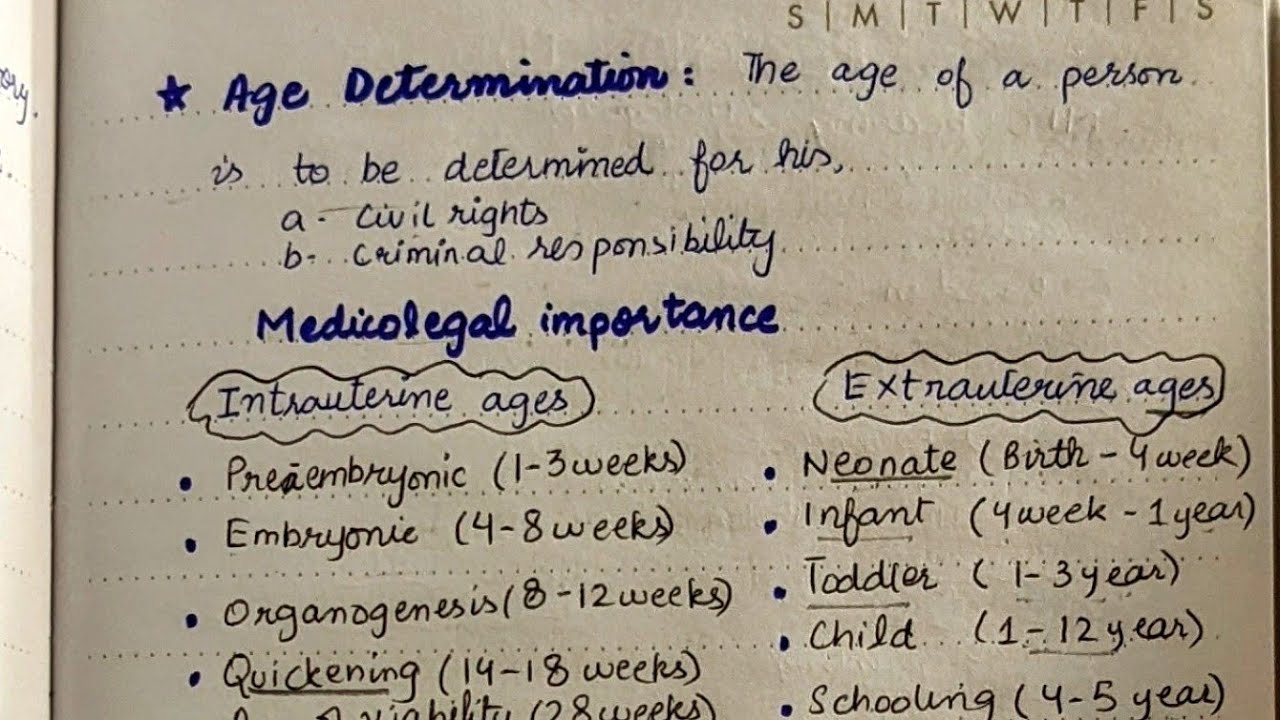 S | M | T | W | T | F | S
★ Age Determination: The age of a person
is to be determined for his,
a - Civil rights
b - Criminal responsibility
Medicolegal importance
Intrauterine ages
• Preembryonic (1-3 weeks)
• Embryonic (4-8 weeks)
• Organogenesis (8-12 weeks)
• Quickening (14-18 weeks)
viability (28 weeks)
Extrauterine ages
• Neonate (Birth - 4 week)
• Infant (4 week - 1 year)
• Toddler (1-3 year)
• Child (1-12 year)
• Schooling (4-5 year)